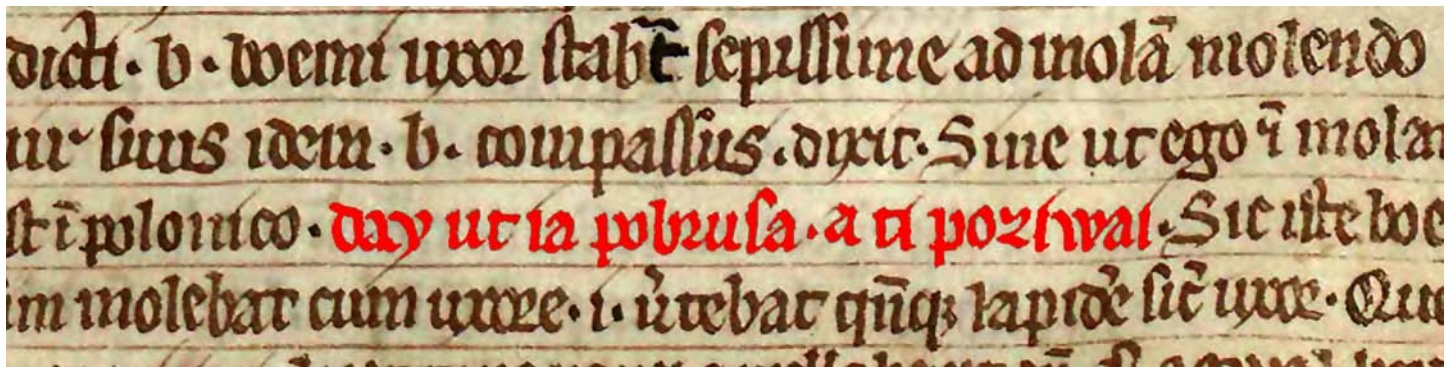 dicti · b · boemi uxor stabat sepissime ad molā molendo
ur suus idem · b · compassus · dixit · Sine ut ego ī molar
st ī polonico · day ut ia pobrusa · a ti poziwai · Sic iste boe
im molebat cum uxore · i · v̓tebat qn̄qȝ lapidē sic̄ uxor · Que